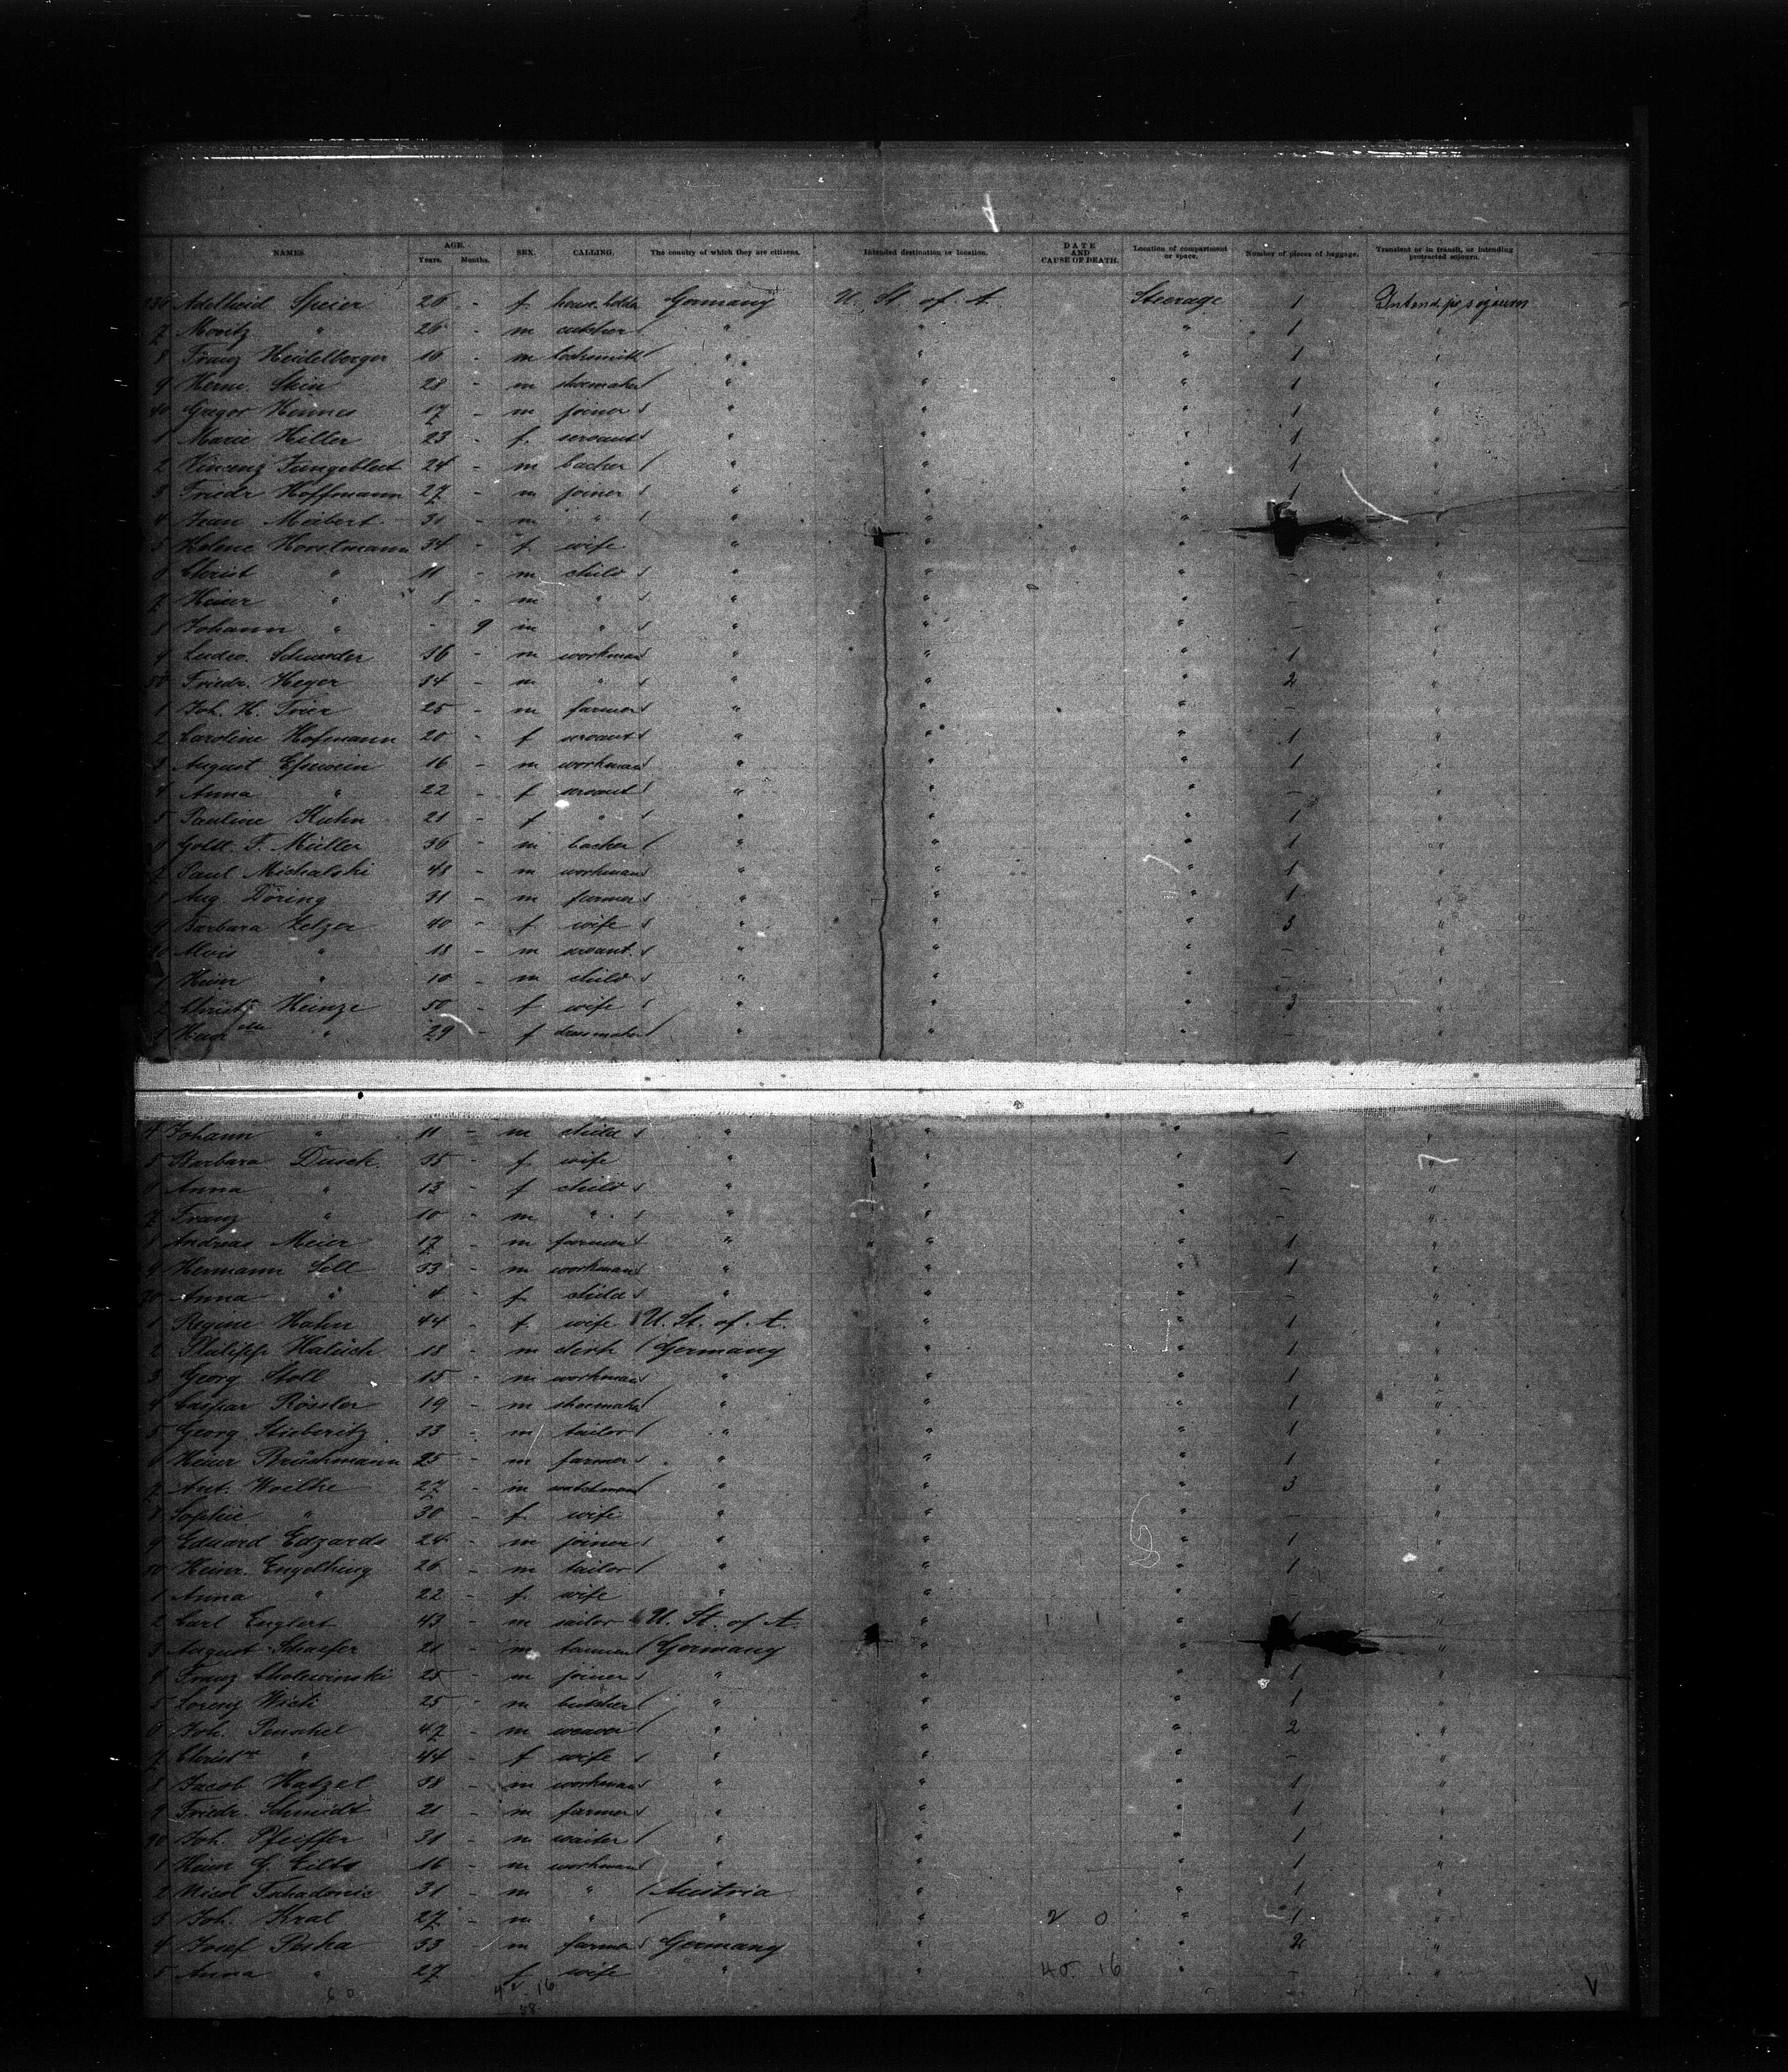 NAMES. AGE. Years. Months. SEX. CALLING. The country of which they are citizens. Intended destination or location. DATE AND CAUSE OF DEATH. Location of compartment or space. Number of pieces of luggage. Transient or in transit, or intending protracted sojourn.
Adelheid Speier 26 - f. Germany U. St. of. A. Steerage 1 Intend. p. sojourn
7 Moritz " 26 - m " " " 1 "
8 Franz Heidelberger 16 - m locksmith " " " 1 "
9 Herm. Stein 28 - m shoemaker " " " 1 "
40 Gregor Hennes 17 - m joiner " " " 1 "
1 Marie Hiller 23 - f. servant " " " 1 "
2 Vincenz Jungeblut 24 - m backer " " " 1 "
3 Friedr Hoffmann 27 - m joiner " " " 1 "
4 Jean Meibert 31 - m " " " " "
5 Helene Horstmann 34 - f wife " " "
6 Christ " 11 - m child " " " - "
7 Heinr " 8 - m " " " " - "
8 Johann " - 9 m " " " " - "
9 Ludw. Schneider 36 - m workman " " " 1 "
50 Friedr. Heger 34 - m " " " " 2 "
1 Joh. H. Trier 25 - m farmer " " " - "
2 Caroline Hofmann 20 - f servant " " " 1 "
3 August 16 - m workman " " " 1 "
4 Anna " 22 - f servant " " " - "
5 Pauline Kuhn 21 - f " " " " 1 "
6 Gottl. F. Müller 36 - m backer " " " 1 "
7 Paul Michalski 48 - m workman " " " 1 "
8 Aug. Döring 31 - m farmer " " " 1 "
9 Barbara Zelzer 40 - f wife " " " 3 "
60 Alois " 18 - m servant. " " " - "
1 Heinr " 10 - m child " " " - "
2 Heinze 50 - f wife " " " 3 "
3 " 29 - f dressmaker " " " - "
4 Johann " 11 - m child " " " - "
5 Barbara Dusek. 35 - f wife " " " 1 "
6 Anna " 13 - f child " " " - "
7 Franz " 10 - m " " " " - "
8 Andreas Meier 17 - m farmer " " " 1 "
9 Hermann Sell 33 - m workman " " " 1 "
70 Anna " 4 - f. child " " " - "
1 Regine Hahn 44 - f wife U. St. of. A. " " 1 "
2 Philipp 18 - m clerk Germany " " 1 "
3 Georg Stoll 15 - m workman " " " 1 "
4 Caspar Rössler 19 - m shoemaker " " " 1 "
5 Georg Stieberitz 33 - m tailor " " " 1 "
6 Heinr Brüshmann 25 - m farmer " " " 1 "
7 Ant. Woelke 27 - m " " " 3 "
8 Sophie " 30 - f wife " " " - "
9 Eduard Edzards 24 - m joiner " " " 1 "
80 Heinr. Engelking 26 - m tailor " " " 1 "
1 Anna " 22 - f. wife " " " - "
2 Carl Englert 43 - m sailor U. St. of A. " " 1 "
3 August Schaefer 21 - m Germany " " "
4 Franz Cholewinski 25 - m joiner " " " 1 "
5 Lorenz 25 - m butcher " " " 1 "
6 Joh. Peuschel 47 - m weaver " " " 2 "
7 Christ " 44 - f wife " " " - "
8 Jacob Hatzel 38 - m workman " " " 1 "
9 Friedr. Schmidt 21 - m farmer " " " 1 "
90 Joh. Pfeiffer 31 - m waiter " " " 1 "
1 Heinr G. Eilts 16 - m workman " " " 1 "
2 Nicol 31 - m " Austria " " 1 "
3 Joh. Kral 27 - m " " " 2 0 " 1 "
4 Josef Peska 33 - m farmer Germany " " 2 "
5 Anna " 27 - f wife " " 40. 16 " - "